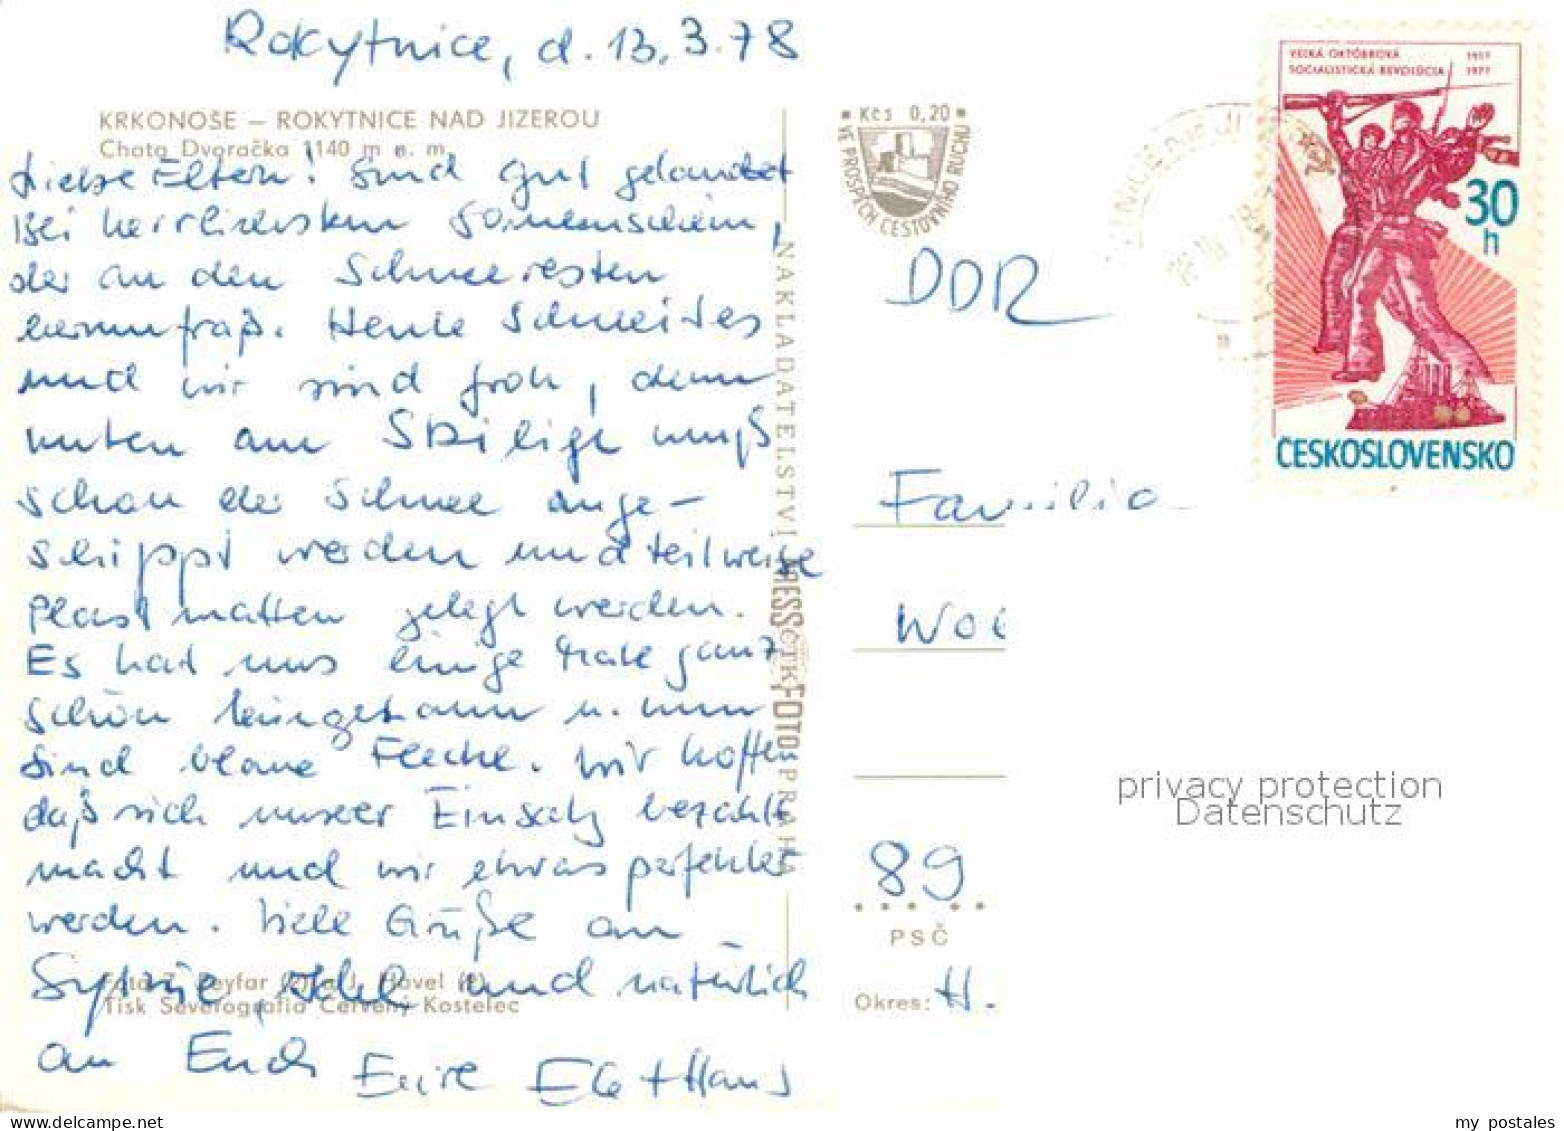 Rokytnice, d. 13.3.78
KRKONOŠE – ROKYTNICE NAD JIZEROU
Chata Dvoračka 1140 m n. m.
Liebe Eltern! Sind gut gelandet
bei herrlichstem Sonnenschein,
der an den Schneeresten
herumfraß. Heute schneit es
und wir sind froh, denn
unten am Skilift muß
schon der Schnee ange-
schippt werden und teilweise
Plastmatten gelegt werden.
Es hat uns einige Male ganz
schön hingehauen u. nun
sind blaue Flecke. Wir hoffen
daß sich unser Einsatz bezahlt
macht und wir etwas perfekter
werden. Viele Grüße an
Foto Z. Feyfar J. Havel
und natürlich
Tisk Severografia Červený Kostelec
an Euch Eure + Hans
NAKLADATELSTVÍ PRESSFOTO PRAHA
ČTK
Kčs 0,20
VE PROSPĚCH CESTOVNÍHO RUCHU
VEĽKÁ OKTÓBROVÁ 1917
SOCIALISTICKÁ REVOLÚCIA 1977
30
h
ČESKOSLOVENSKO
DDR
Familie
89
PSČ
Okres: H.
privacy protection
Datenschutz
www.delcampe.net
my_postales